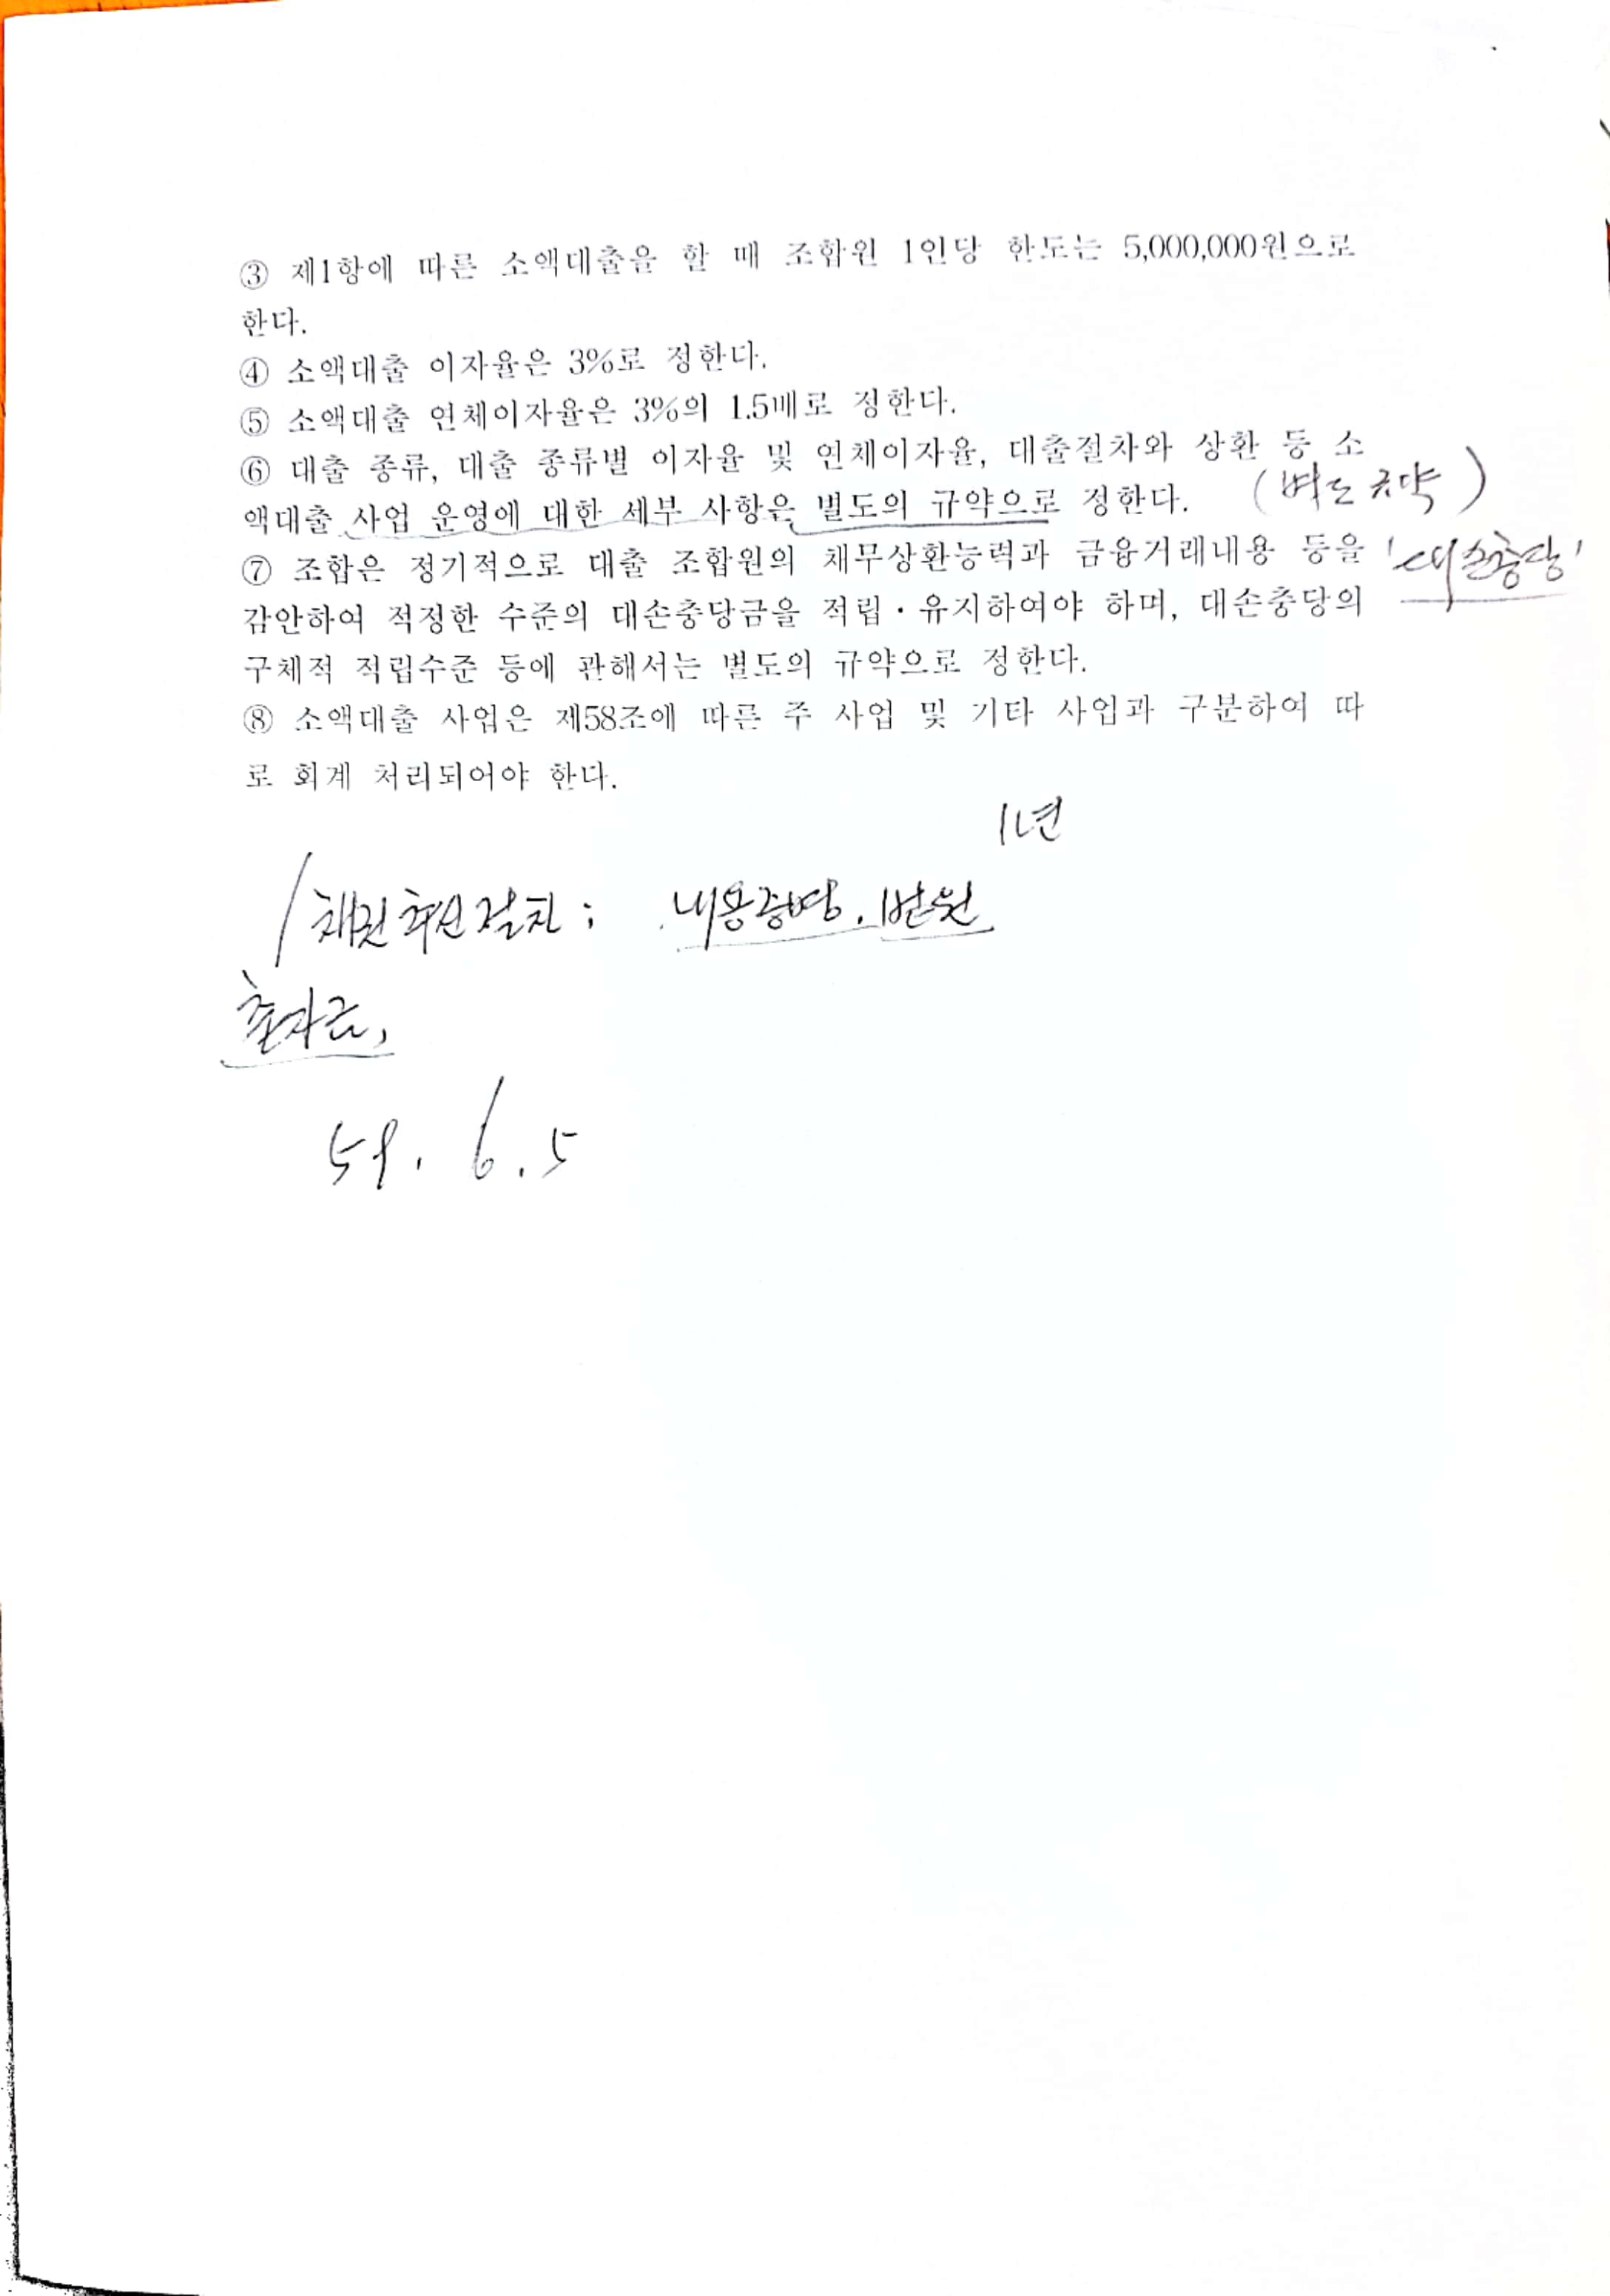 ③ 제1항에 따른 소액대출을 할 때 조합원 1인당 한도는 5,000,000원으로
한다.
④ 소액대출 이자율은 3%로 정한다.
⑤ 소액대출 연체이자율은 3%의 1.5배로 정한다.
⑥ 대출 종류, 대출 종류별 이자율 및 연체이자율, 대출절차와 상환 등 소
액대출 사업 운영에 대한 세부 사항은 별도의 규약으로 정한다. (별도 규약)
⑦ 조합은 정기적으로 대출 조합원의 채무상환능력과 금융거래내용 등을 '대손충당'
감안하여 적정한 수준의 대손충당금을 적립·유지하여야 하며, 대손충당의
구체적 적립수준 등에 관해서는 별도의 규약으로 정한다.
⑧ 소액대출 사업은 제58조에 따른 주 사업 및 기타 사업과 구분하여 따
로 회계 처리되어야 한다.
1년
채권 절차 : 내용증명.
출자금,
59. 6. 5